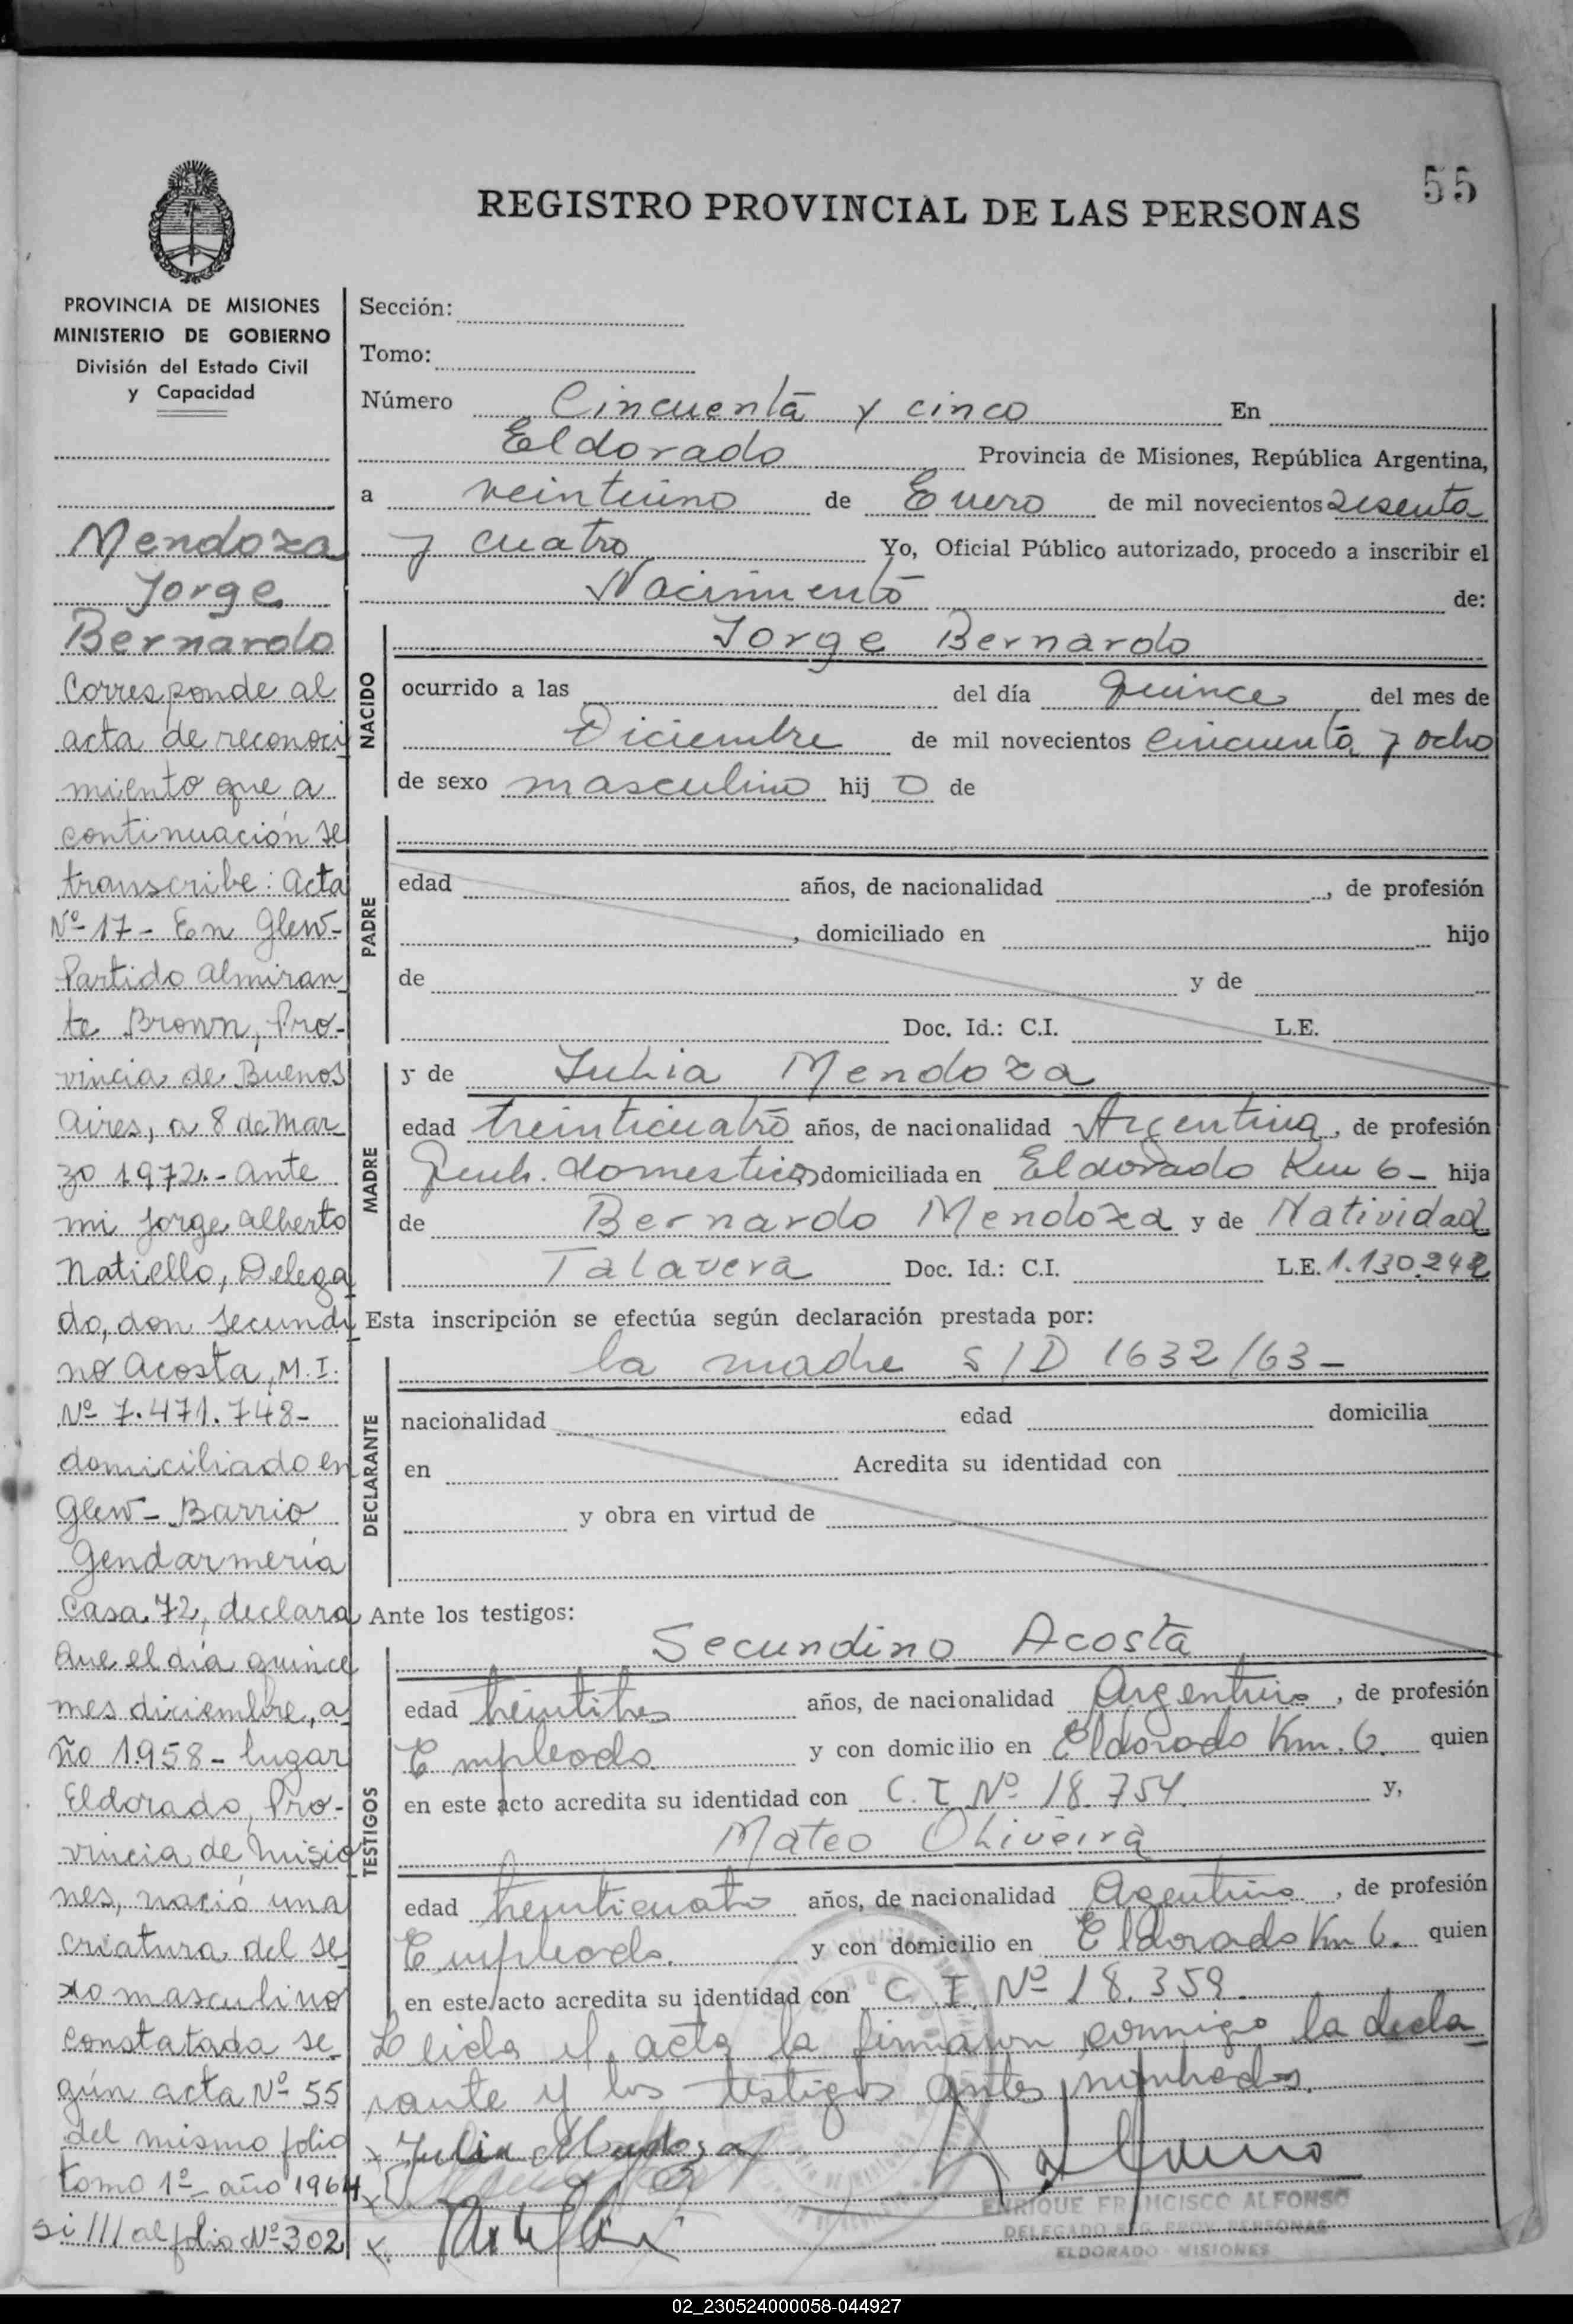 55
REGISTRO PROVINCIAL DE LAS PERSONAS
PROVINCIA DE MISIONES
MINISTERIO DE GOBIERNO
División del Estado Civil
y Capacidad
Mendoza
Jorge
Bernardo
Corresponde al
acta de reconoci
miento que a
continuación se
transcribe: Acta
Nº 17 - En Glew-
Partido Almiran
te Brown, Pro-
vincia de Buenos
Aires, a 8 de Mar
zo 1972.- ante
mi Jorge Alberto
Natiello, Delega
do, don Secundi
no Acosta, M.I.
Nº 7.471.748-
domiciliado en
Glew - Barrio
Gendarmería
Casa 72, declara
Que el día quince
mes diciembre, a
ño 1958 - lugar
Eldorado, Pro-
vincia de Misio
nes, nació una
criatura del se
xo masculino
constatada se-
gún acta Nº 55
del mismo folio
tomo 1º año 1964
si /// al folio Nº 302
Sección:
Tomo:
Número Cincuenta y cinco En
Eldorado Provincia de Misiones, República Argentina,
a veintiuno de Enero de mil novecientos sesenta
y cuatro Yo, Oficial Público autorizado, procedo a inscribir el
Nacimiento de:
NACIDO
Jorge Bernardo
ocurrido a las del día quince del mes de
Diciembre de mil novecientos cincuenta y ocho
de sexo masculino hij o de
PADRE
edad años, de nacionalidad , de profesión
, domiciliado en hijo
de y de
Doc. Id.: C.I. L.E.
MADRE
y de Julia Mendoza
edad treinticuatro años, de nacionalidad Argentina, de profesión
Queh. domesticos domiciliada en Eldorado Km 6 - hija
de Bernardo Mendoza y de Natividad
Talavera Doc. Id.: C.I. L.E. 1.130.242
Esta inscripción se efectúa según declaración prestada por:
DECLARANTE
la madre S/D 1632/63-
nacionalidad edad domicilia
en Acredita su identidad con
y obra en virtud de
Ante los testigos:
TESTIGOS
Secundino Acosta
edad treintitres años, de nacionalidad Argentino, de profesión
Empleado. y con domicilio en Eldorado Km. 6. quien
en este acto acredita su identidad con C. I. Nº 18.754. y,
Mateo Oliveira
edad treinticuatro años, de nacionalidad Agentino, de profesión
Empleado. y con domicilio en Eldorado Km 6. quien
en este acto acredita su identidad con C. I. Nº 18.359.
Leida el acta la firmaron conmigo la decla
rante y los testigos antes nombrados.
x Julia Mendoza
x
x
ENRIQUE FRANCISCO ALFONSO
DELEGADO REG. PROV. PERSONAS
ELDORADO - MISIONES
02_230524000058-044927